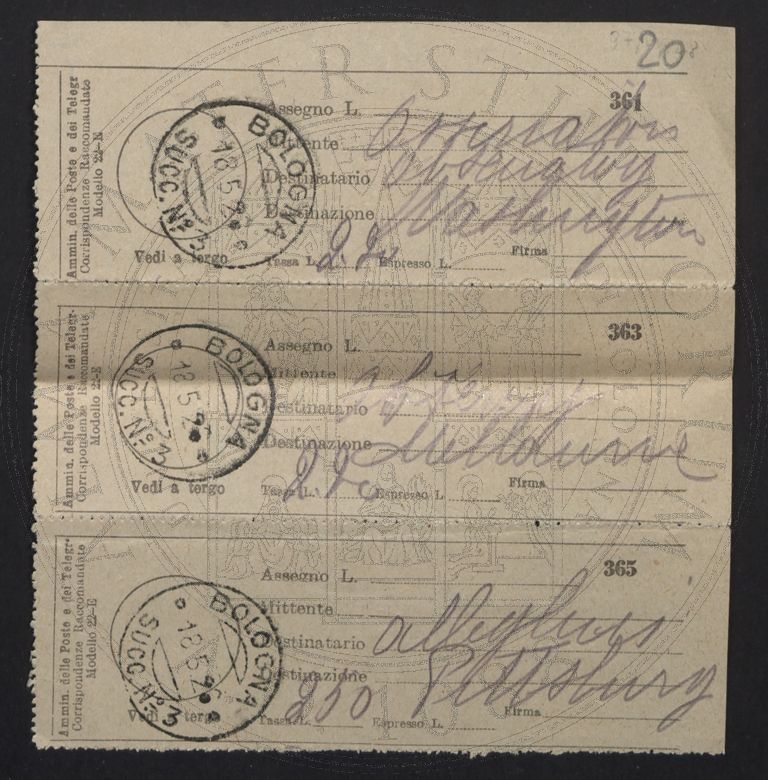 20
361
Ammin. delle Poste e dei Telegr.
Corrispondenze Raccomandate
Modello 22-E
BOLOGNA
SUCC. N° 3
18.5.2
Assegno L.
Mittente
Destinatario observatory
Destinazione Washington
Vedi a tergo
Tassa L. 2.20 Espresso L. Firma
363
Ammin. delle Poste e dei Telegr.
Corrispondenze Raccomandate
Modello 22-E
BOLOGNA
SUCC. N° 3
18.5.2
Assegno L.
Mittente
Destinatario
Destinazione Melbourne
Vedi a tergo
Tassa L. 220 Espresso L. Firma
365
Ammin. delle Poste e dei Telegr.
Corrispondenze Raccomandate
Modello 22-E
BOLOGNA
SUCC. N° 3
18.5.26
Assegno L.
Mittente
Destinatario Allegheny
Destinazione Pittsburg
Vedi a tergo
Tassa L. 250 Espresso L. Firma